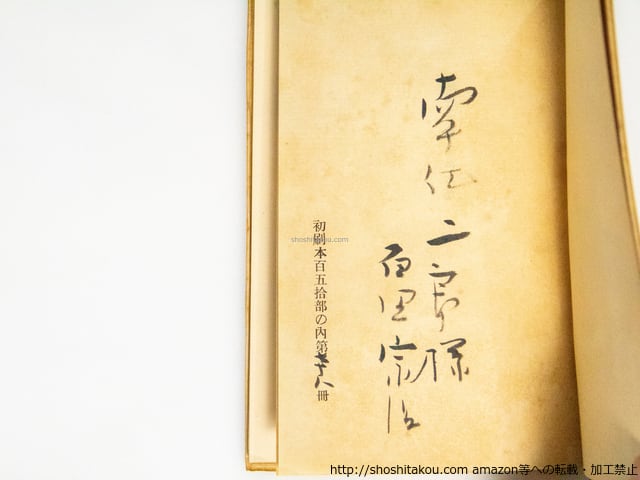 南江二郎様
百田宗治
初刷本百五拾部の內第七十八冊
shoshitakou.com
http://shoshitakou.com amazon等への転載・加工禁止